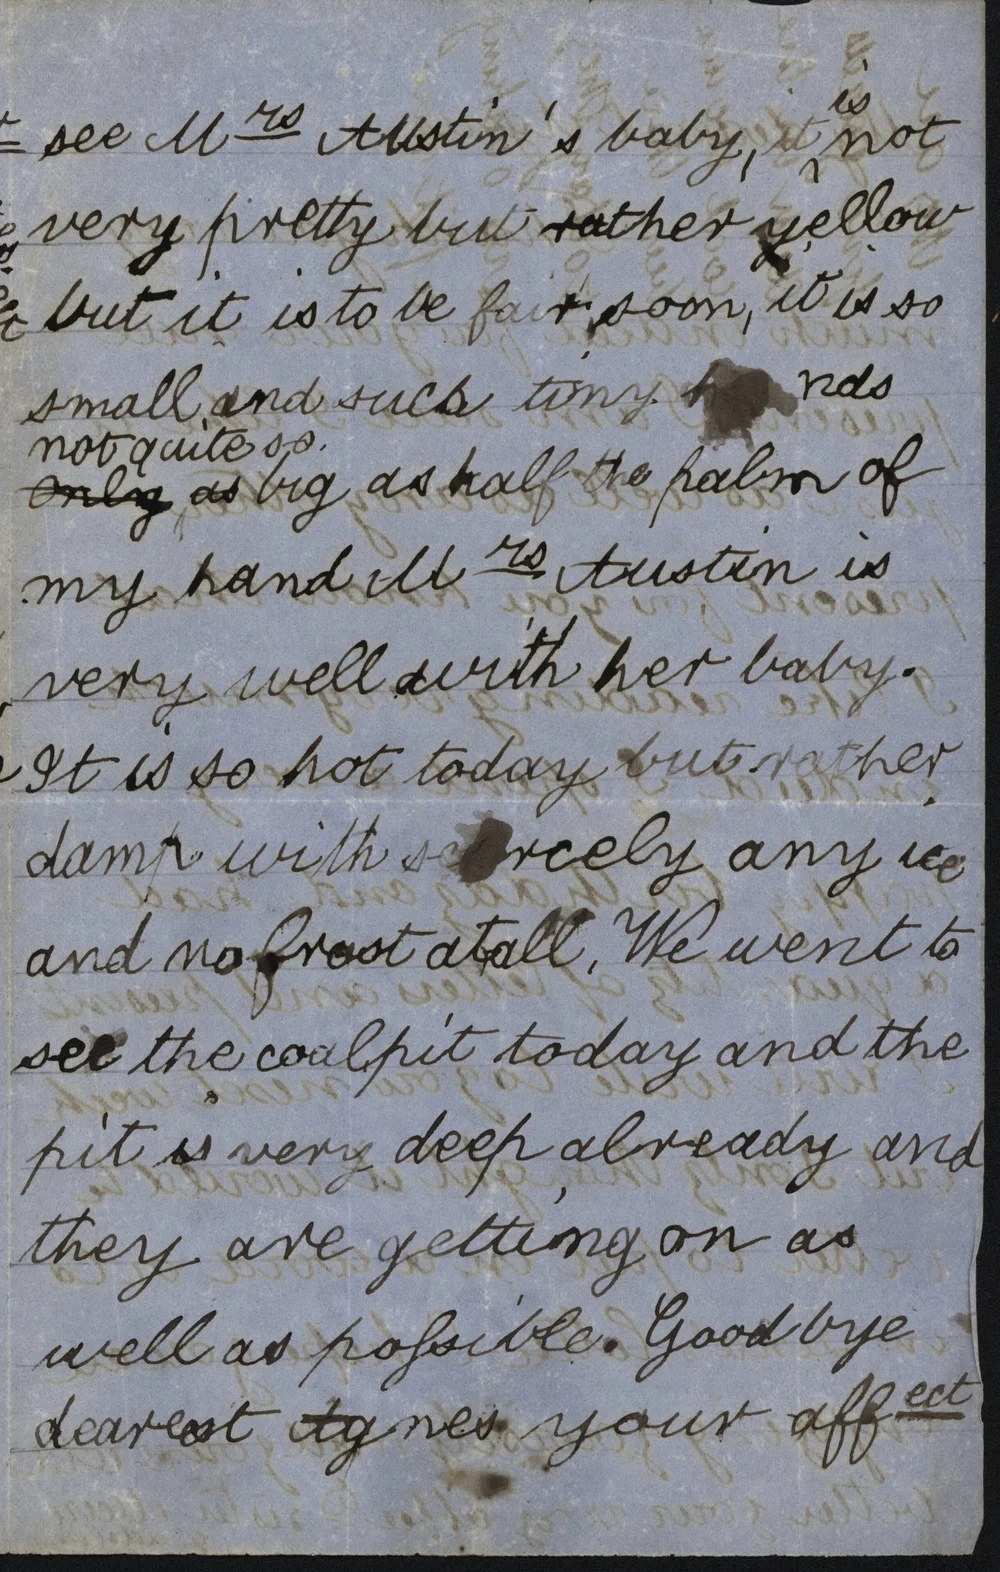 see Mrs Austin's baby, it is not
very pretty but rather yellow
but it is to be fair soon, it is so
small and such tiny hands
not quite so
only as big as half the palm of
my hand Mrs Austin is
very well with her baby.
It is so hot today but rather
damp with scarcely any ice
and no frost at all. We went to
see the coalpit today and the
pit is very deep already and
they are getting on as
well as possible. Good bye
dearest Agnes your affect